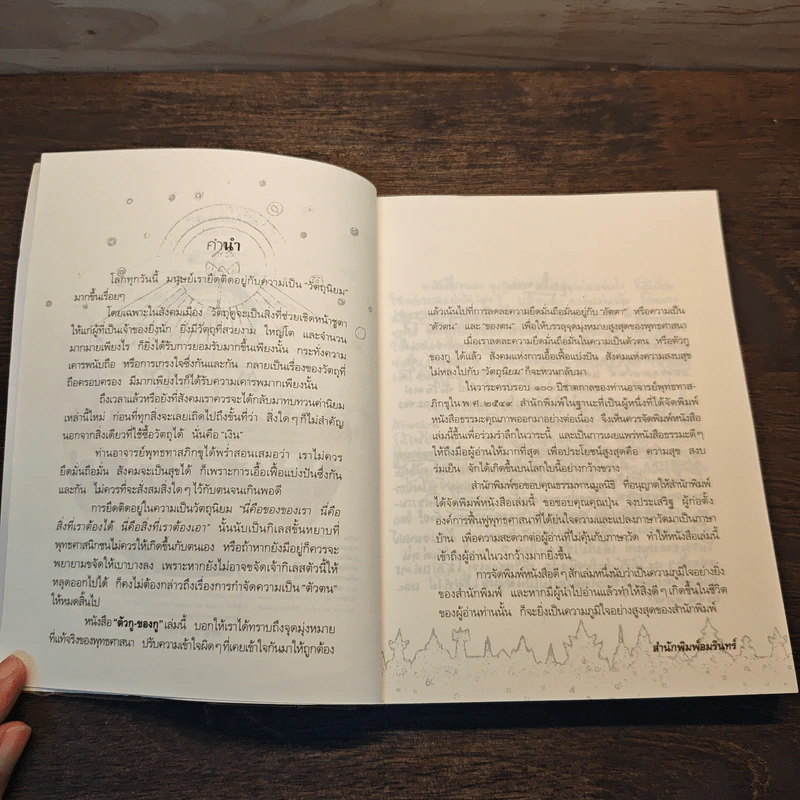 คำนำ
โลกทุกวันนี้ มนุษย์เรายึดติดอยู่กับความเป็น "วัตถุนิยม"
มากขึ้นเรื่อยๆ
โดยเฉพาะในสังคมเมือง วัตถุดูจะเป็นสิ่งที่ช่วยเชิดหน้าชูตา
ให้แก่ผู้ที่เป็นเจ้าของยิ่งนัก ยิ่งมีวัตถุที่สวยงาม ใหญ่โต และจำนวน
มากมายเพียงไร ก็ยิ่งได้รับการยอมรับมากขึ้นเพียงนั้น กระทั่งความ
เคารพนับถือ หรือการเกรงใจซึ่งกันและกัน กลายเป็นเรื่องของวัตถุที่
ถือครอบครอง มีมากเพียงไรก็ได้รับความเคารพมากเพียงนั้น
ถึงเวลาแล้วหรือยังที่สังคมเราควรจะได้กลับมาทบทวนค่านิยม
เหล่านี้ใหม่ ก่อนที่ทุกสิ่งจะเลยเถิดไปถึงขั้นที่ว่า สิ่งใดๆ ก็ไม่สำคัญ
นอกจากสิ่งเดียวที่ใช้ซื้อวัตถุได้ นั่นคือ "เงิน"
ท่านอาจารย์พุทธทาสภิกขุได้พร่ำสอนเสมอว่า เราไม่ควร
ยึดมั่นถือมั่น สังคมจะเป็นสุขได้ ก็เพราะการเอื้อเฟื้อแบ่งปันซึ่งกัน
และกัน ไม่ควรที่จะสั่งสมสิ่งใดๆ ไว้กับตนจนเกินพอดี
การยึดติดอยู่ในความเป็นวัตถุนิยม "นี่คือของของเรา นี่คือ
สิ่งที่เราต้องได้ นี่คือสิ่งที่เราต้องเอา" นั้นนับเป็นกิเลสขั้นหยาบที่
พุทธศาสนิกชนไม่ควรให้เกิดขึ้นกับตนเอง หรือถ้าหากยังมีอยู่ก็ควรจะ
พยายามขจัดให้เบาบางลง เพราะหากยังไม่อาจขจัดเจ้ากิเลสตัวนี้ให้
หลุดออกไปได้ ก็คงไม่ต้องกล่าวถึงเรื่องการกำจัดความเป็น "ตัวตน"
ให้หมดสิ้นไป
หนังสือ "ตัวกู-ของกู" เล่มนี้ บอกให้เราได้ทราบถึงจุดมุ่งหมาย
ที่แท้จริงของพุทธศาสนา ปรับความเข้าใจผิดๆ ที่เคยเข้าใจกันมาให้ถูกต้อง
แล้วเน้นไปที่การลดละความยึดมั่นถือมั่นอยู่กับ "อัตตา" หรือความเป็น
"ตัวตน" และ "ของตน" เพื่อให้บรรลุจุดมุ่งหมายสูงสุดของพุทธศาสนา
เมื่อเราลดละความยึดมั่นถือมั่นในความเป็นตัวตน หรือตัวกู
ของกู ได้แล้ว สังคมแห่งการเอื้อเฟื้อแบ่งปัน สังคมแห่งความสงบสุข
ไม่หลงไปกับ "วัตถุนิยม" ก็จะหวนกลับมา
ในวาระครบรอบ ๑๐๐ ปีชาตกาลของท่านอาจารย์พุทธทาส-
ภิกขุใน พ.ศ. ๒๕๔๙ สำนักพิมพ์ในฐานะที่เป็นผู้หนึ่งที่ได้จัดพิมพ์
หนังสือธรรมะคุณภาพออกมาอย่างต่อเนื่อง จึงเห็นควรจัดพิมพ์หนังสือ
เล่มนี้ขึ้นเพื่อร่วมรำลึกในวาระนี้ และเป็นการเผยแพร่หนังสือธรรมะดีๆ
ให้ถึงมือผู้อ่านให้มากที่สุด เพื่อประโยชน์สูงสุดคือ ความสุข สงบ
ร่มเย็น จักได้เกิดขึ้นบนโลกใบนี้อย่างกว้างขวาง
สำนักพิมพ์ขอขอบคุณธรรมทานมูลนิธิ ที่อนุญาตให้สำนักพิมพ์
ได้จัดพิมพ์หนังสือเล่มนี้ ขอขอบคุณคุณปุ่น จงประเสริฐ ผู้ก่อตั้ง
องค์การฟื้นฟูพุทธศาสนาที่ได้ย่นใจความและแปลงภาษาวัดมาเป็นภาษา
บ้าน เพื่อความสะดวกต่อผู้อ่านที่ไม่คุ้นกับภาษาวัด ทำให้หนังสือเล่มนี้
เข้าถึงผู้อ่านในวงกว้างมากยิ่งขึ้น
การจัดพิมพ์หนังสือดีๆ สักเล่มหนึ่งนับว่าเป็นความภูมิใจอย่างยิ่ง
ของสำนักพิมพ์ และหากมีผู้นำไปอ่านแล้วทำให้สิ่งดีๆ เกิดขึ้นในชีวิต
ของผู้อ่านท่านนั้น ก็จะยิ่งเป็นความภูมิใจอย่างสูงสุดของสำนักพิมพ์
สำนักพิมพ์อมรินทร์